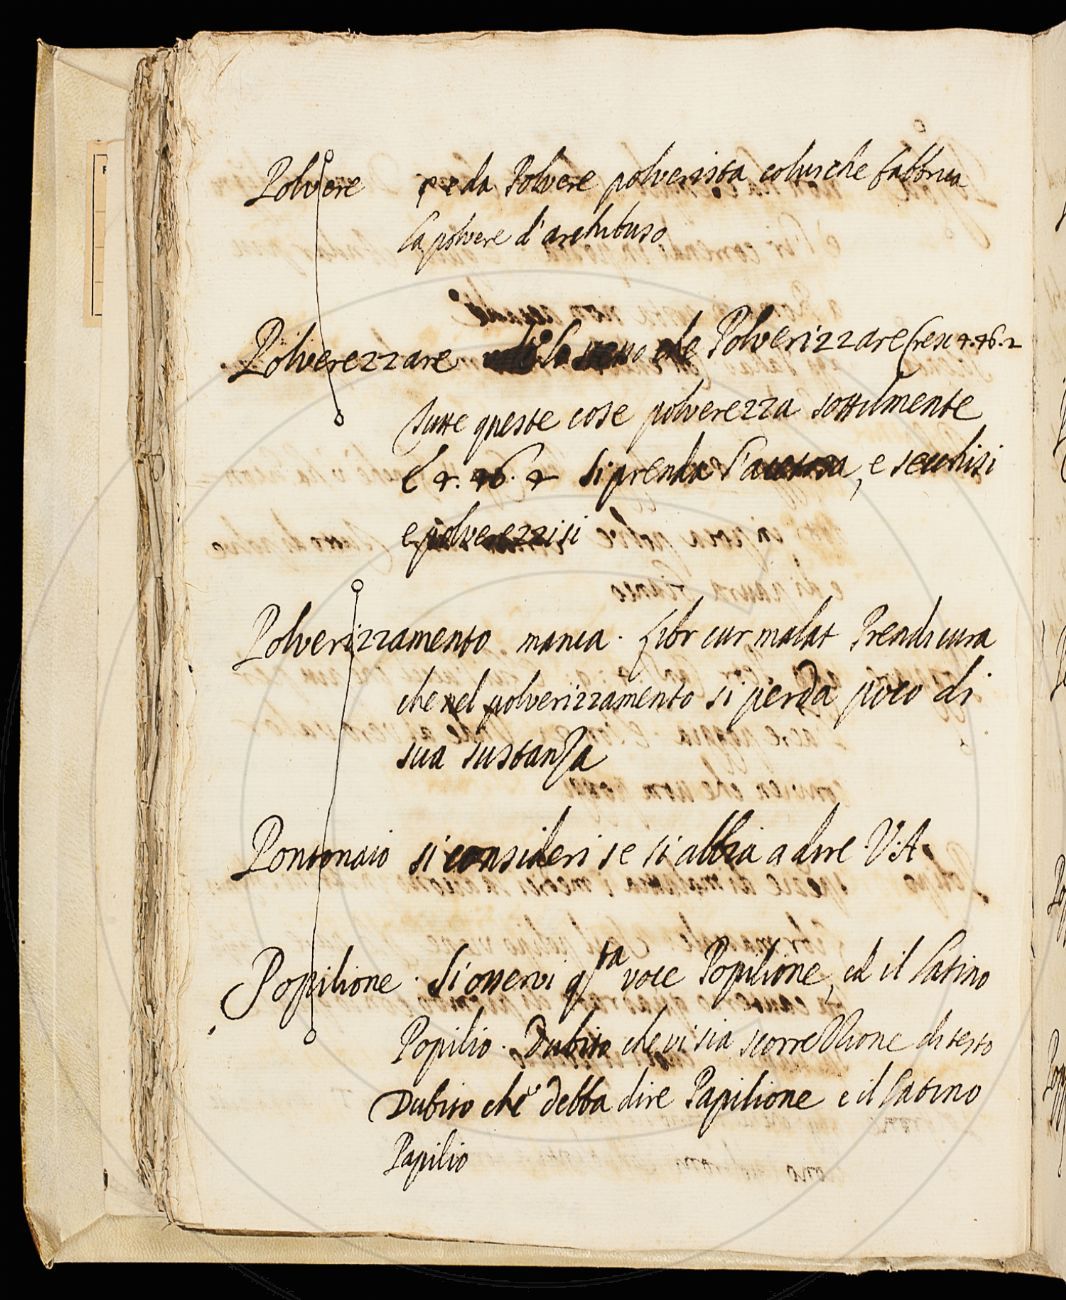 Polvere e da Polvere polverista colui che fabbrica
la polvere d'archibuso
Polverezzare che Polverizzare Cresc 4.46.2
Tutte queste cose polverezza sottilmente
E 4. 46. 4 si prenda l'acetosa, e secchisi
e polverezzisi
Polverizzamento manca. Libr cur malat Prendi cura
che nel polverizzamento si perda poco di
sua sustanza
Pontonaio si consideri se si abbia a dire V. A.
Popilione. Si osservi qsta voce Popilione, ed il latino
Popilio. Dubito che vi sia scorrezzione di testo
Dubito che debba dire Papilione e il latino
Papilio